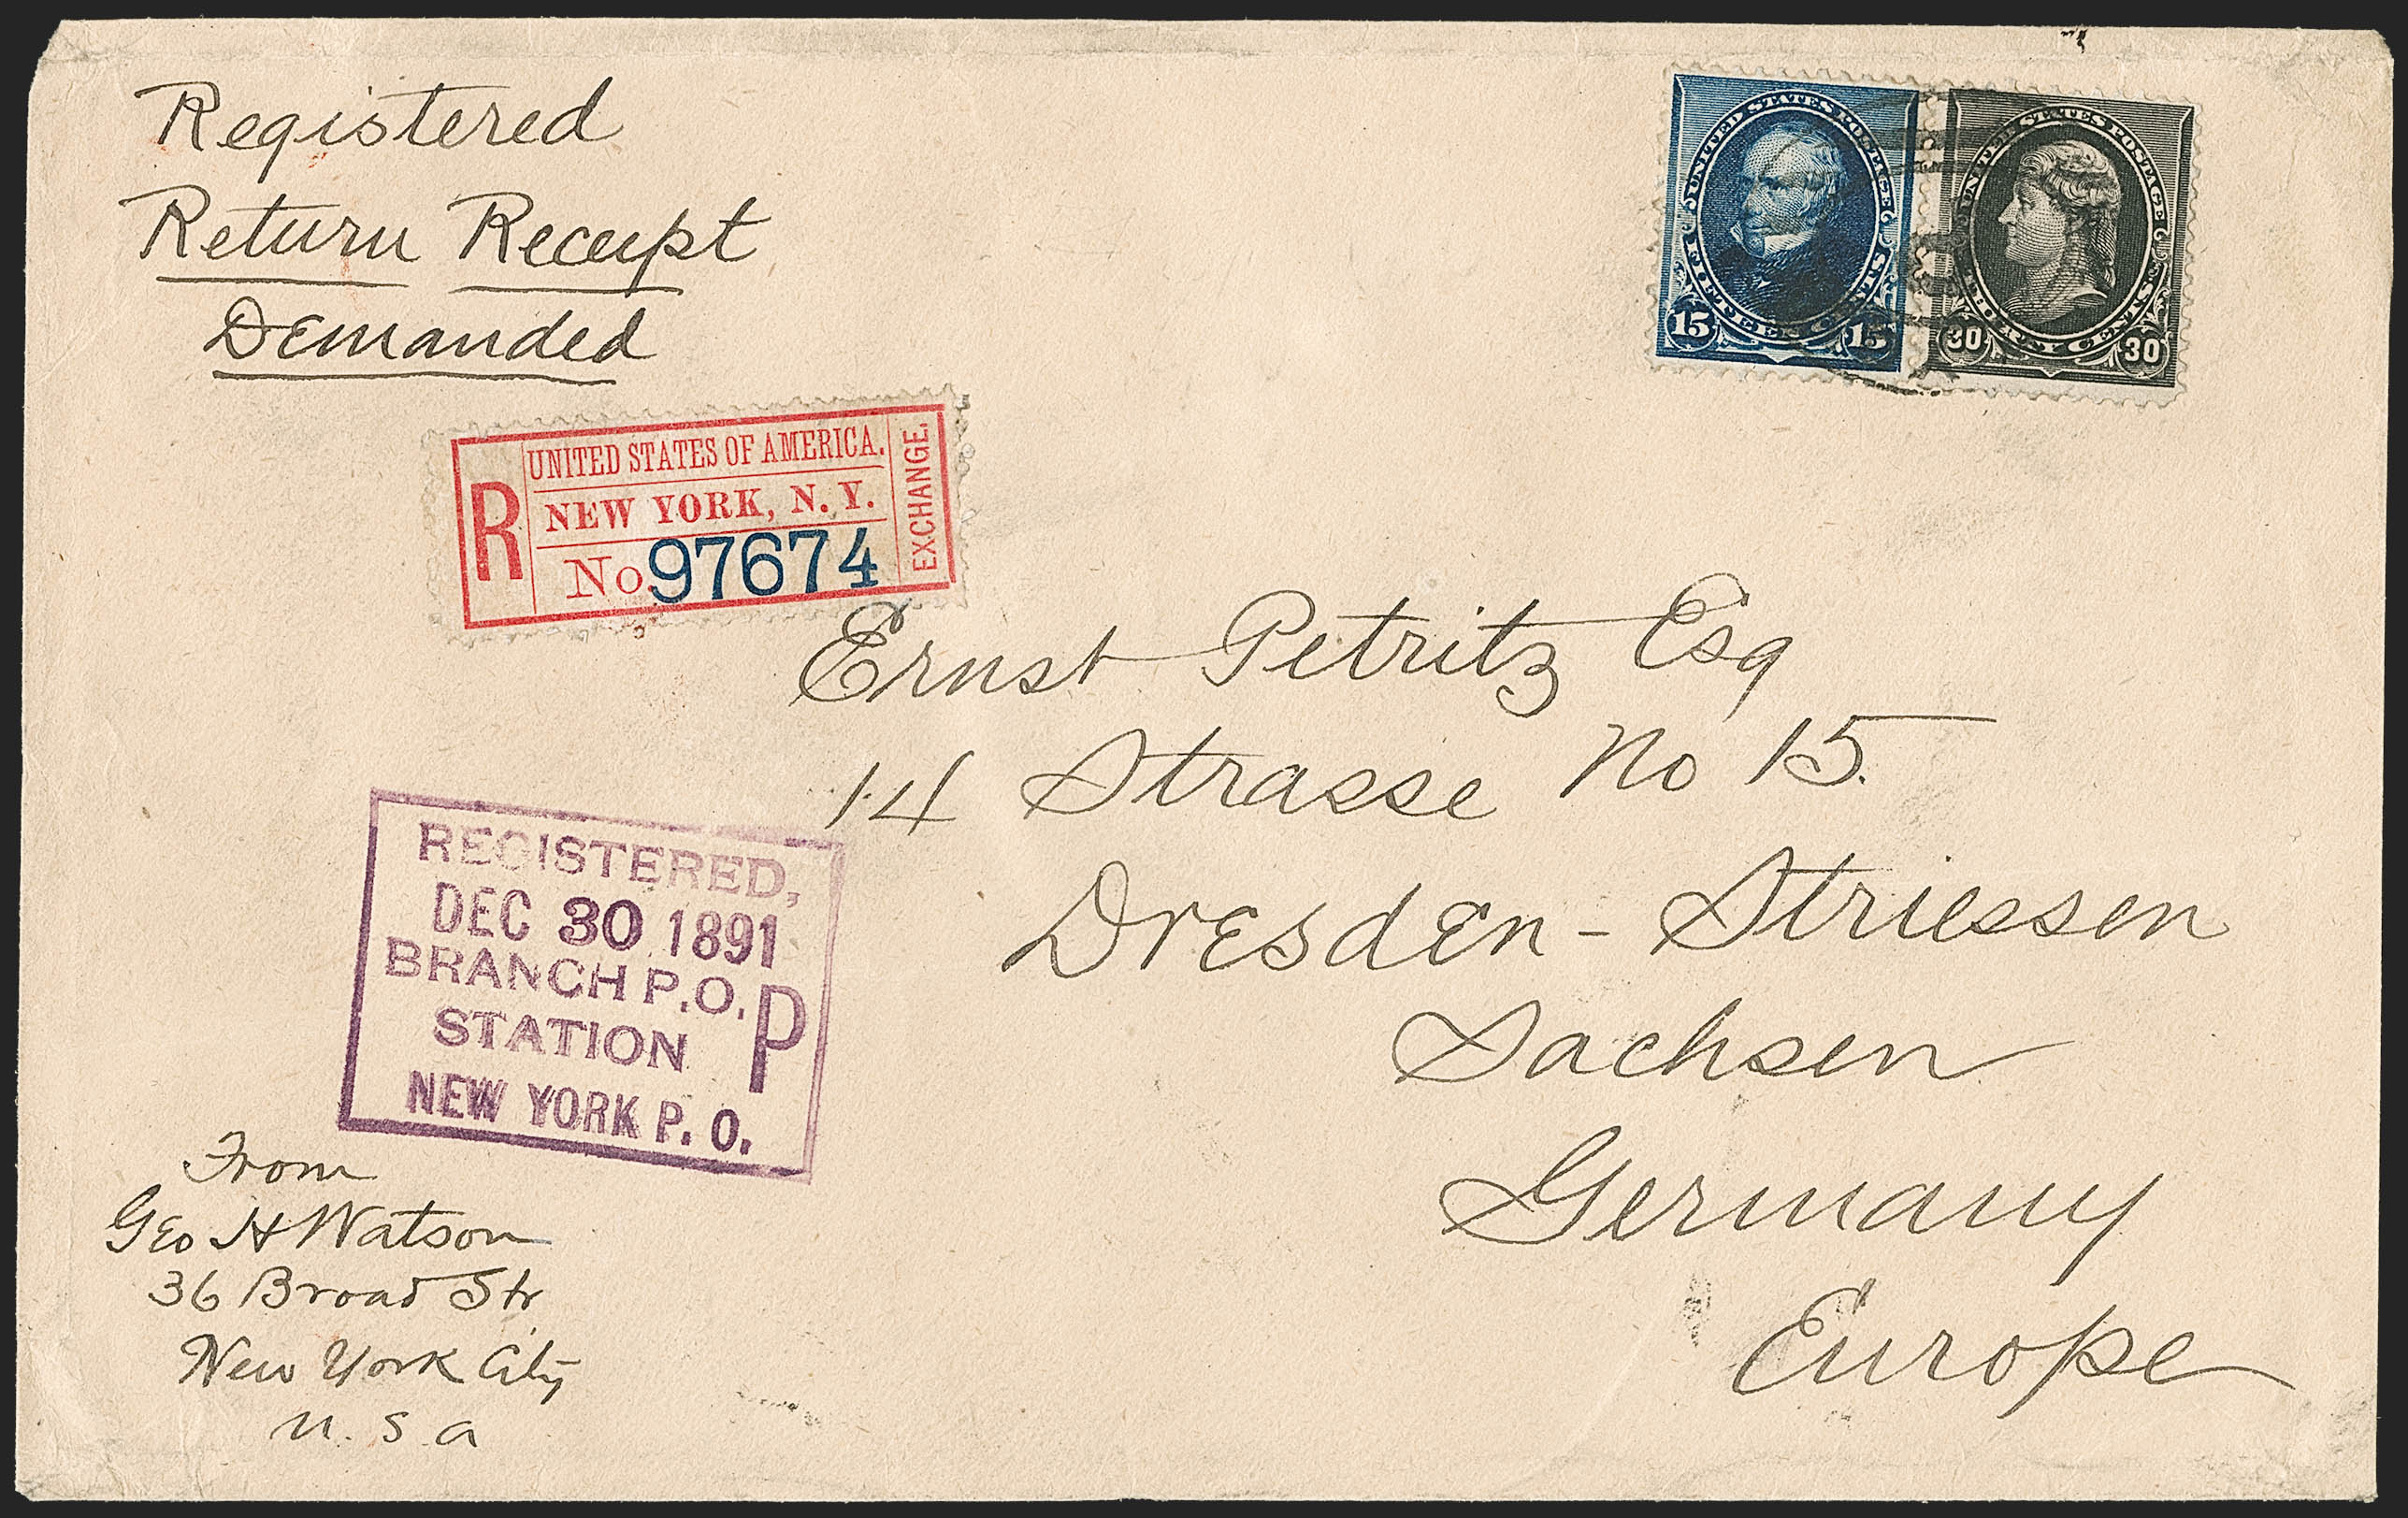 Registered
Return Receipt
Demanded
UNITED STATES POSTAGE
FIFTEEN CENTS
15 15
UNITED STATES POSTAGE
THIRTY CENTS
30 30
R
UNITED STATES OF AMERICA.
NEW YORK, N. Y.
No. 97674
EXCHANGE.
Ernst Petritz Esq
14 Strasse No 15.
Dresden - Striessen
Sachsen
Germany
Europe
REGISTERED,
DEC 30 1891
BRANCH P.O.
STATION P
NEW YORK P. O.
From
Geo H Watson
36 Broad Str
New York City
U. S. a